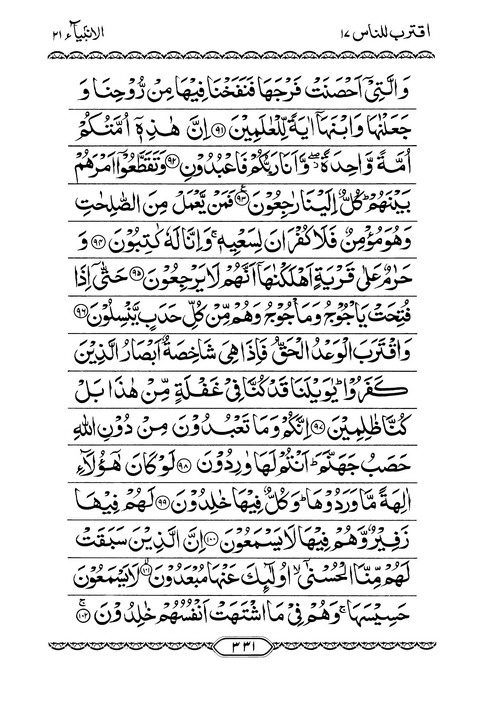 اقترب للناس ١٧
الانبيآء ٢١
وَالَّتِیْۤ اَحْصَنَتْ فَرْجَهَا فَنَفَخْنَا فِیْهَا مِنْ رُّوْحِنَا وَ
جَعَلْنٰهَا وَابْنَهَاۤ اٰیَةً لِّلْعٰلَمِیْنَ ﴿٩١﴾ اِنَّ هٰذِهٖۤ اُمَّتُكُمْ
اُمَّةً وَّاحِدَةً ۖ٘ وَّاَنَا رَبُّكُمْ فَاعْبُدُوْنِ ﴿٩٢﴾ وَتَقَطَّعُوْۤا اَمْرَهُمْ
بَیْنَهُمْ ؕ كُلٌّ اِلَیْنَا رٰجِعُوْنَ ﴿٩٣﴾ؒ فَمَنْ یَّعْمَلْ مِنَ الصّٰلِحٰتِ
وَهُوَ مُؤْمِنٌ فَلَا كُفْرَانَ لِسَعْیِهٖ ۚ وَاِنَّا لَهٗ كٰتِبُوْنَ ﴿٩٤﴾ وَ
حَرٰمٌ عَلٰی قَرْیَةٍ اَهْلَكْنٰهَاۤ اَنَّهُمْ لَا یَرْجِعُوْنَ ﴿٩٥﴾ حَتّٰۤی اِذَا
فُتِحَتْ یَاْجُوْجُ وَمَاْجُوْجُ وَهُمْ مِّنْ كُلِّ حَدَبٍ یَّنْسِلُوْنَ ﴿٩٦﴾
وَاقْتَرَبَ الْوَعْدُ الْحَقُّ فَاِذَا هِیَ شَاخِصَةٌ اَبْصَارُ الَّذِیْنَ
كَفَرُوْا ؕ یٰوَیْلَنَا قَدْ كُنَّا فِیْ غَفْلَةٍ مِّنْ هٰذَا بَلْ
كُنَّا ظٰلِمِیْنَ ﴿٩٧﴾ اِنَّكُمْ وَمَا تَعْبُدُوْنَ مِنْ دُوْنِ اللّٰهِ
حَصَبُ جَهَنَّمَ ؕ اَنْتُمْ لَهَا وٰرِدُوْنَ ﴿٩٨﴾ لَوْ كَانَ هٰۤؤُلَآءِ
اٰلِهَةً مَّا وَرَدُوْهَا ؕ وَكُلٌّ فِیْهَا خٰلِدُوْنَ ﴿٩٩﴾ لَهُمْ فِیْهَا
زَفِیْرٌ وَّهُمْ فِیْهَا لَا یَسْمَعُوْنَ ﴿١٠٠﴾ اِنَّ الَّذِیْنَ سَبَقَتْ
لَهُمْ مِّنَّا الْحُسْنٰۤی ۙ اُولٰٓىِٕكَ عَنْهَا مُبْعَدُوْنَ ﴿١٠١﴾ۙ لَا یَسْمَعُوْنَ
حَسِیْسَهَا ۚ وَهُمْ فِیْ مَا اشْتَهَتْ اَنْفُسُهُمْ خٰلِدُوْنَ ﴿١٠٢﴾ۚ
٣٣١